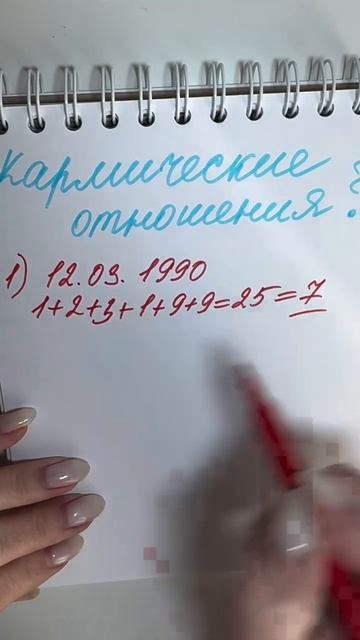 Кармические
отношения
1) 12.03.1990
1+2+3+1+9+9=25=7